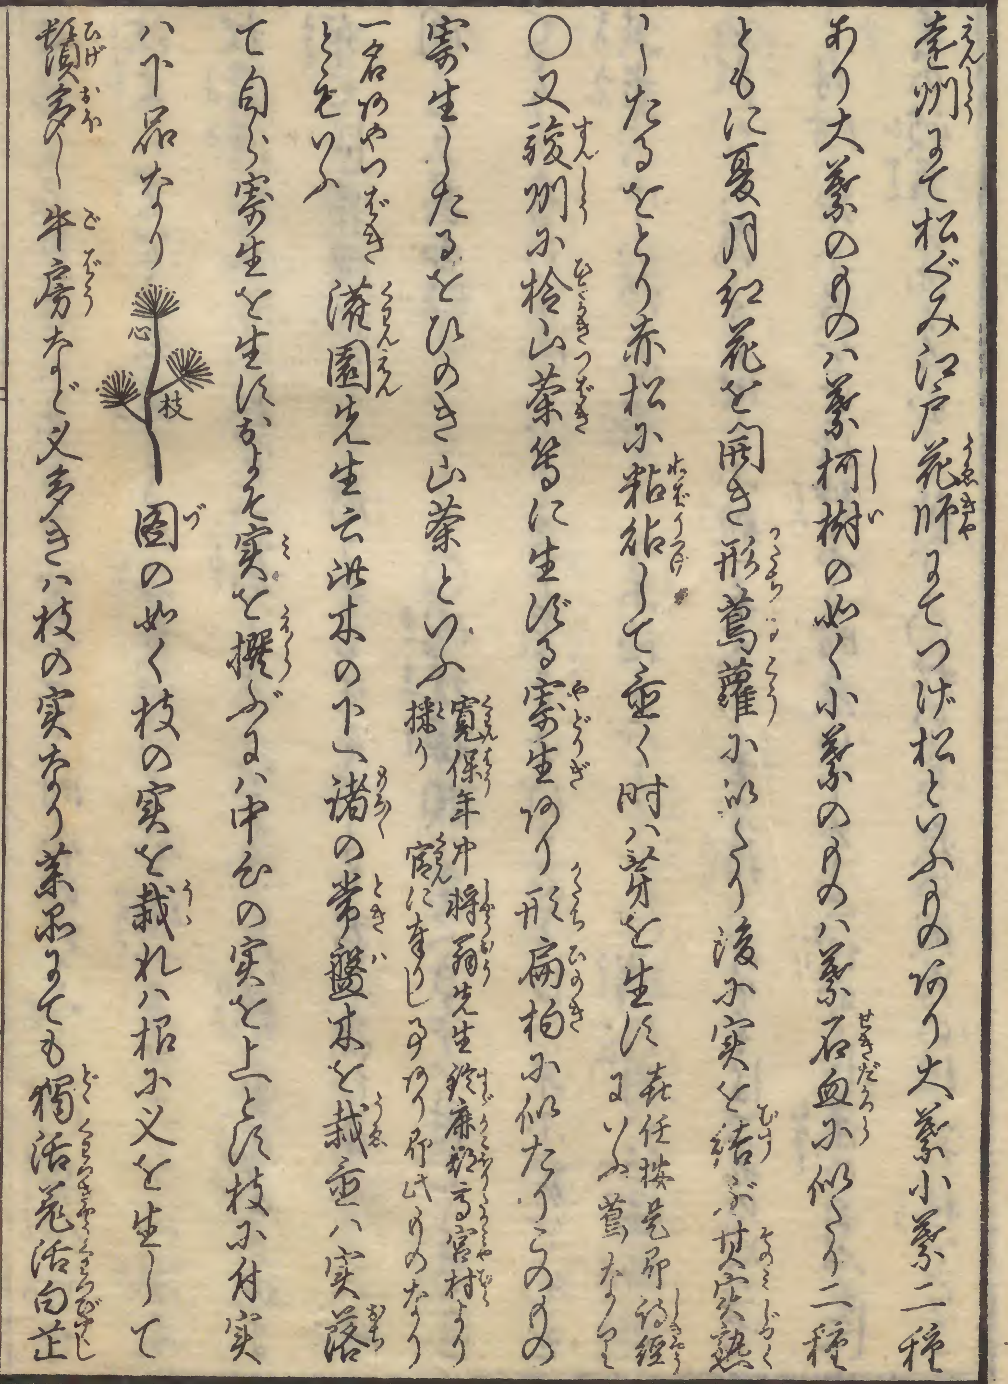 遠州にて松ぐみ江戸花師にてつげ松といふものあり大葉小葉二種
あり大葉のものハ葉柯樹の如く小葉のものハ葉石血に似たり二種
ともに夏月紅花を開き形蔦蘿に似たり後に実を結ぶ其実熟
したるをとり赤松に粘砧して置く時ハ芽を生ず 玄任按是即詩経にいふ蔦なり
○又駿州に柃山茶等に生ずる寄生あり形扁柏に似たりこのもの
寄生したるをひのき山茶といふ 寛保年中将翁先生鈴麻郡高宮村より採り官に奉りし事あり即此ものなり
一名あやつばきともいふ 𣾰園先生云此木の下へ諸の常盤木を栽置ハ実落
て自ら寄生を生ずおよそ実を撰ぶにハ中心の実を上とす枝に付実
ハ下品なり 心 枝 図の如く枝の実を栽れハ根に义を生して
鬚多し牛房など义多きハ枝の実なり薬品にても獨活羌活白芷